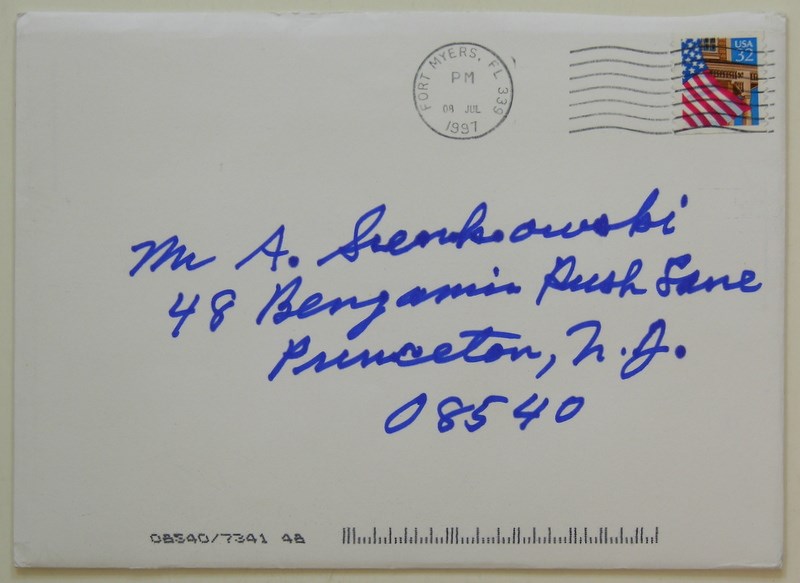 FORT MYERS, FL 339
PM
08 JUL
1997
USA
32
Mr A. Sienkowski
48 Benjamin Rush Lane
Princeton, N.J.
08540
08540/7341 48